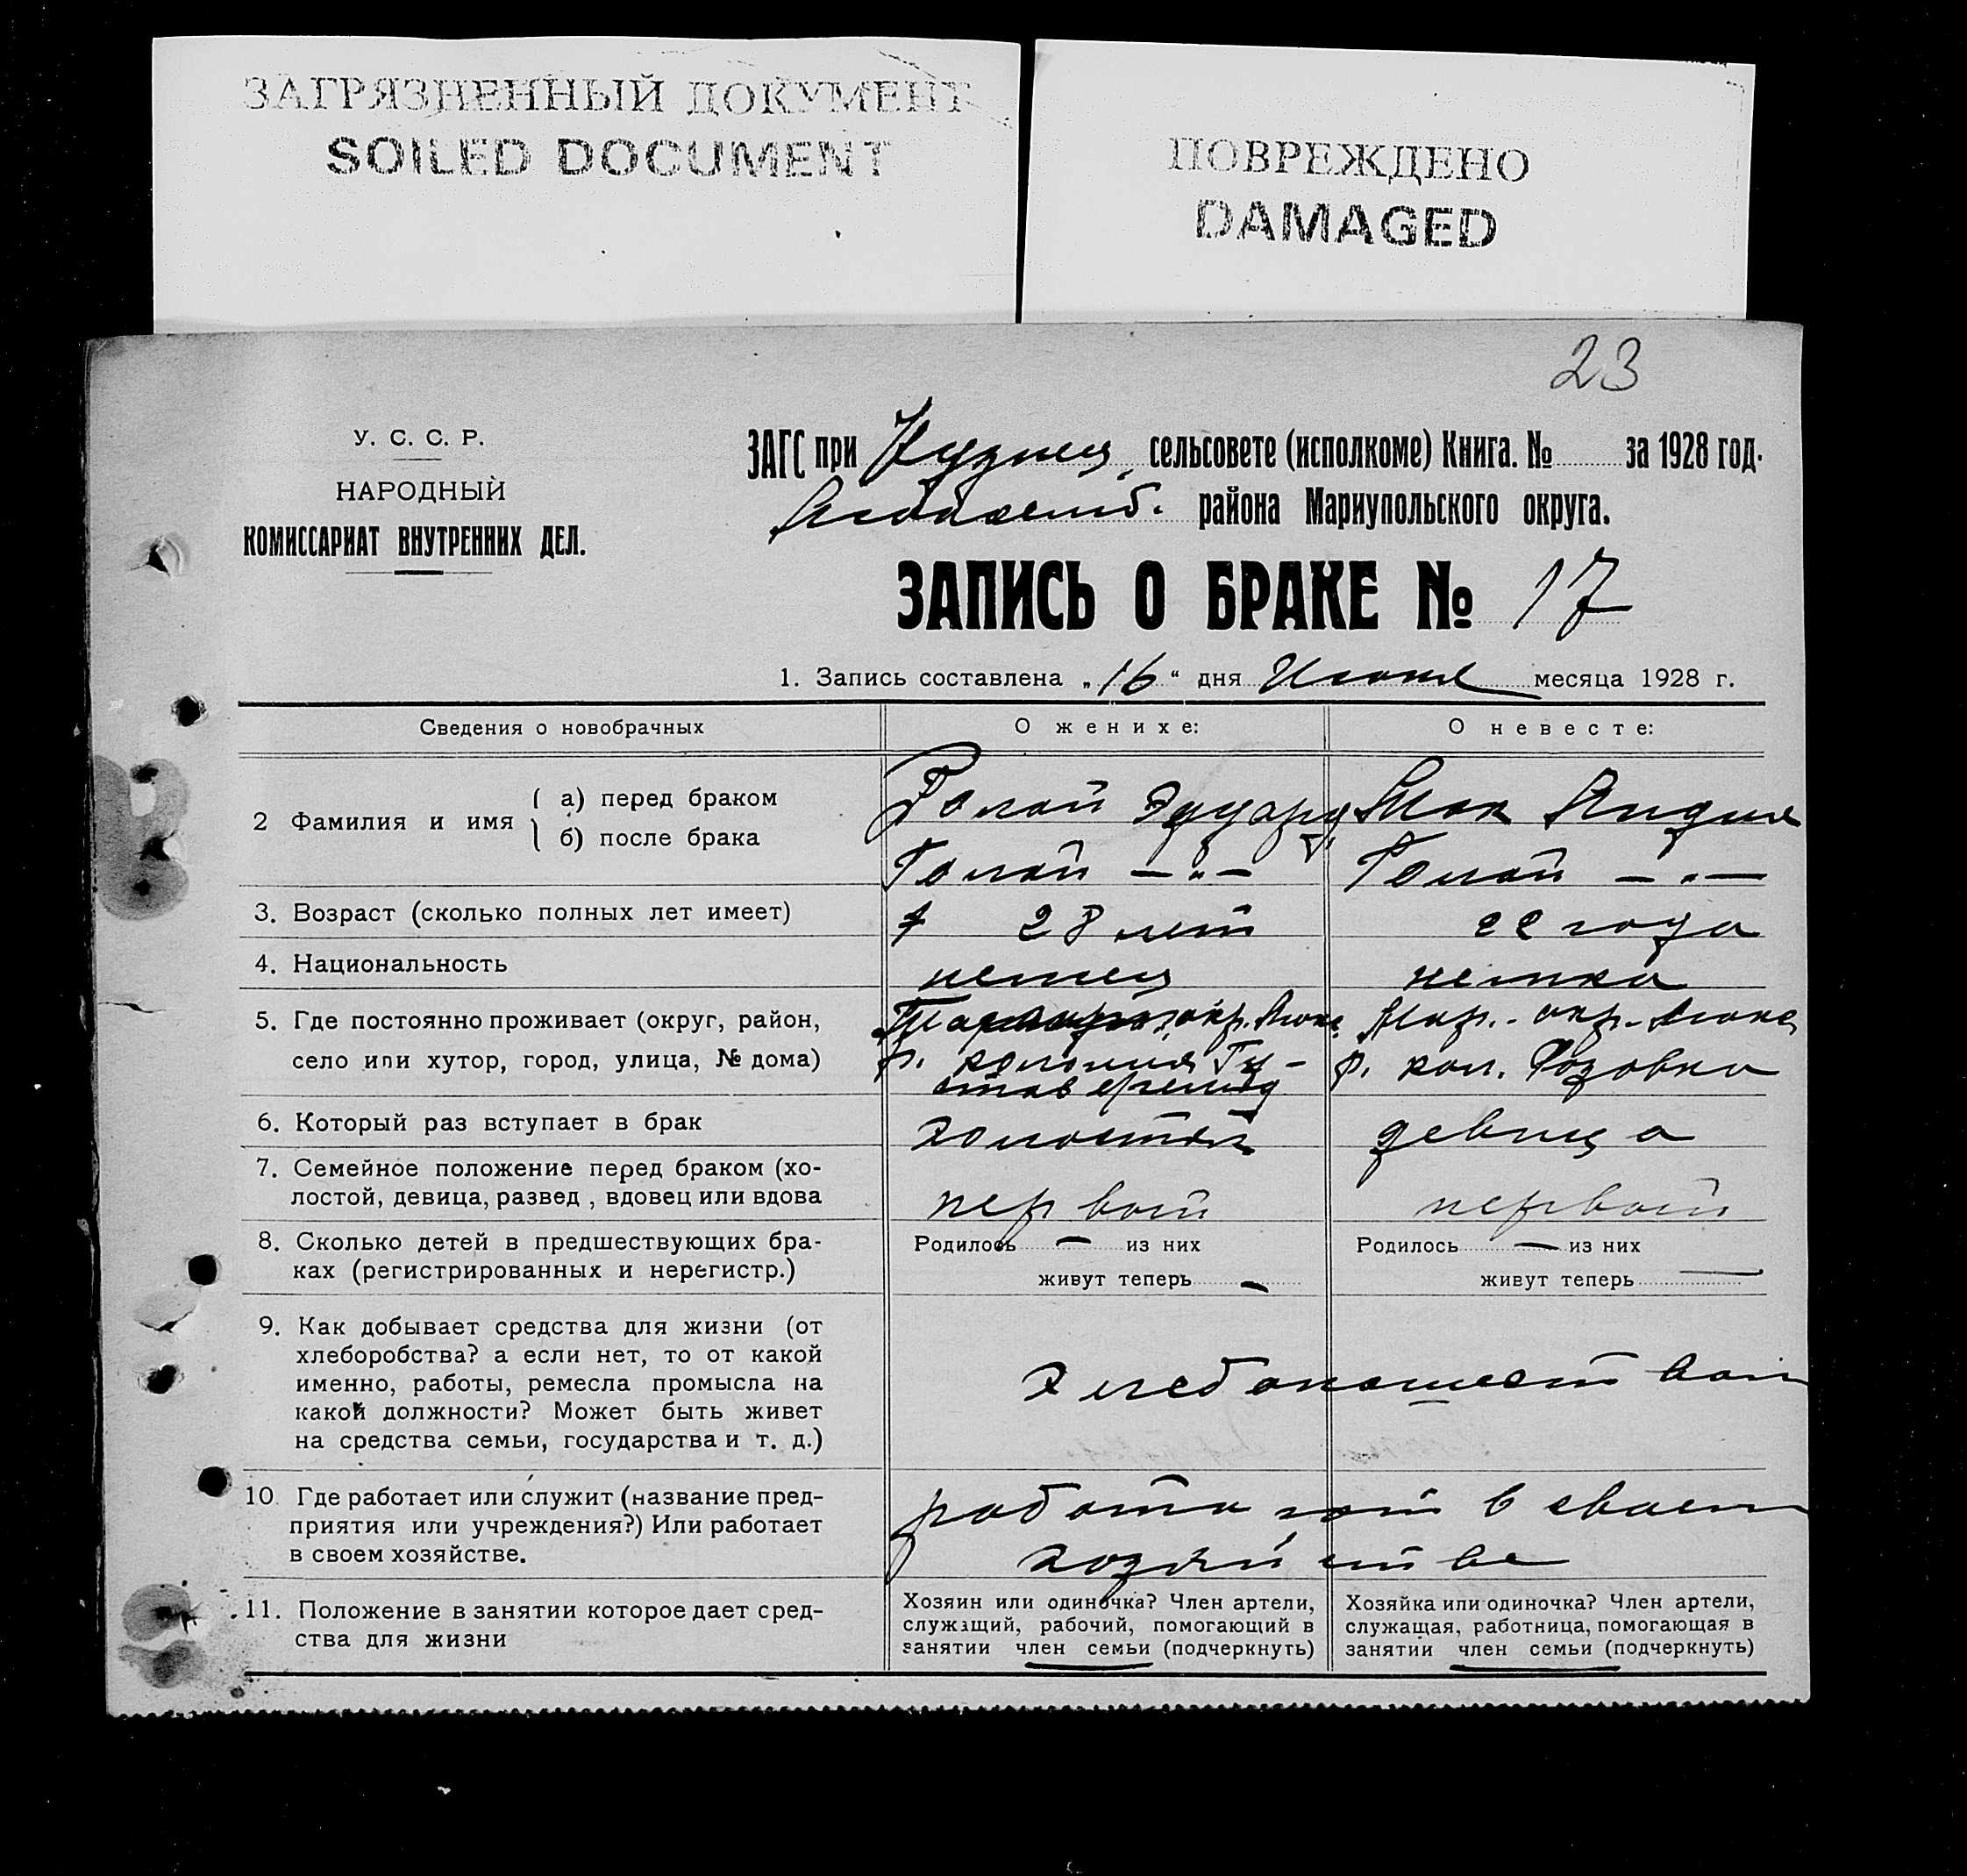 ЗАГРЯЗНЕННЫЙ ДОКУМЕНТ
SOILED DOCUMENT
ПОВРЕЖДЕНО
DAMAGED
23
У. С. С. Р.
НАРОДНЫЙ
КОМИССАРИАТ ВНУТРЕННИХ ДЕЛ.
ЗАГС при Кузнец. сельсовете (исполкоме) Книга. № за 1928 год.
района Мариупольского округа.
ЗАПИСЬ О БРАКЕ № 17
1. Запись составлена „16“ дня Июня месяца 1928 г.
Сведения о новобрачных
О женихе:
О невесте:
2 Фамилия и имя { а) перед браком
б) после брака
Голай Эдуард
Голай —„—
Лидия
Голай —„—
3. Возраст (сколько полных лет имеет)
28 лет
22 года
4. Национальность
немец
немка
5. Где постоянно проживает (округ, район,
село или хутор, город, улица, № дома)
окр. Люкс
р. колония Гу-
ставфельд
Мар. окр. Люкс
р. кол. Розовка
6. Который раз вступает в брак
холостой
девица
7. Семейное положение перед браком (хо-
лостой, девица, развед , вдовец или вдова
первый
первый
8. Сколько детей в предшествующих бра-
ках (регистрированных и нерегистр.)
Родилось — из них
живут теперь —
Родилось — из них
живут теперь —
9. Как добывает средства для жизни (от
хлеборобства? а если нет, то от какой
именно, работы, ремесла промысла на
какой должности? Может быть живет
на средства семьи, государства и т. д.)
хлебопашеством
10. Где работает или служит (название пред-
приятия или учреждения?) Или работает
в своем хозяйстве.
работают в своем
хозяйстве
11. Положение в занятии которое дает сред-
ства для жизни
Хозяин или одиночка? Член артели,
служащий, рабочий, помогающий в
занятии член семьи (подчеркнуть)
Хозяйка или одиночка? Член артели,
служащая, работница, помогающая в
занятии член семьи (подчеркнуть)